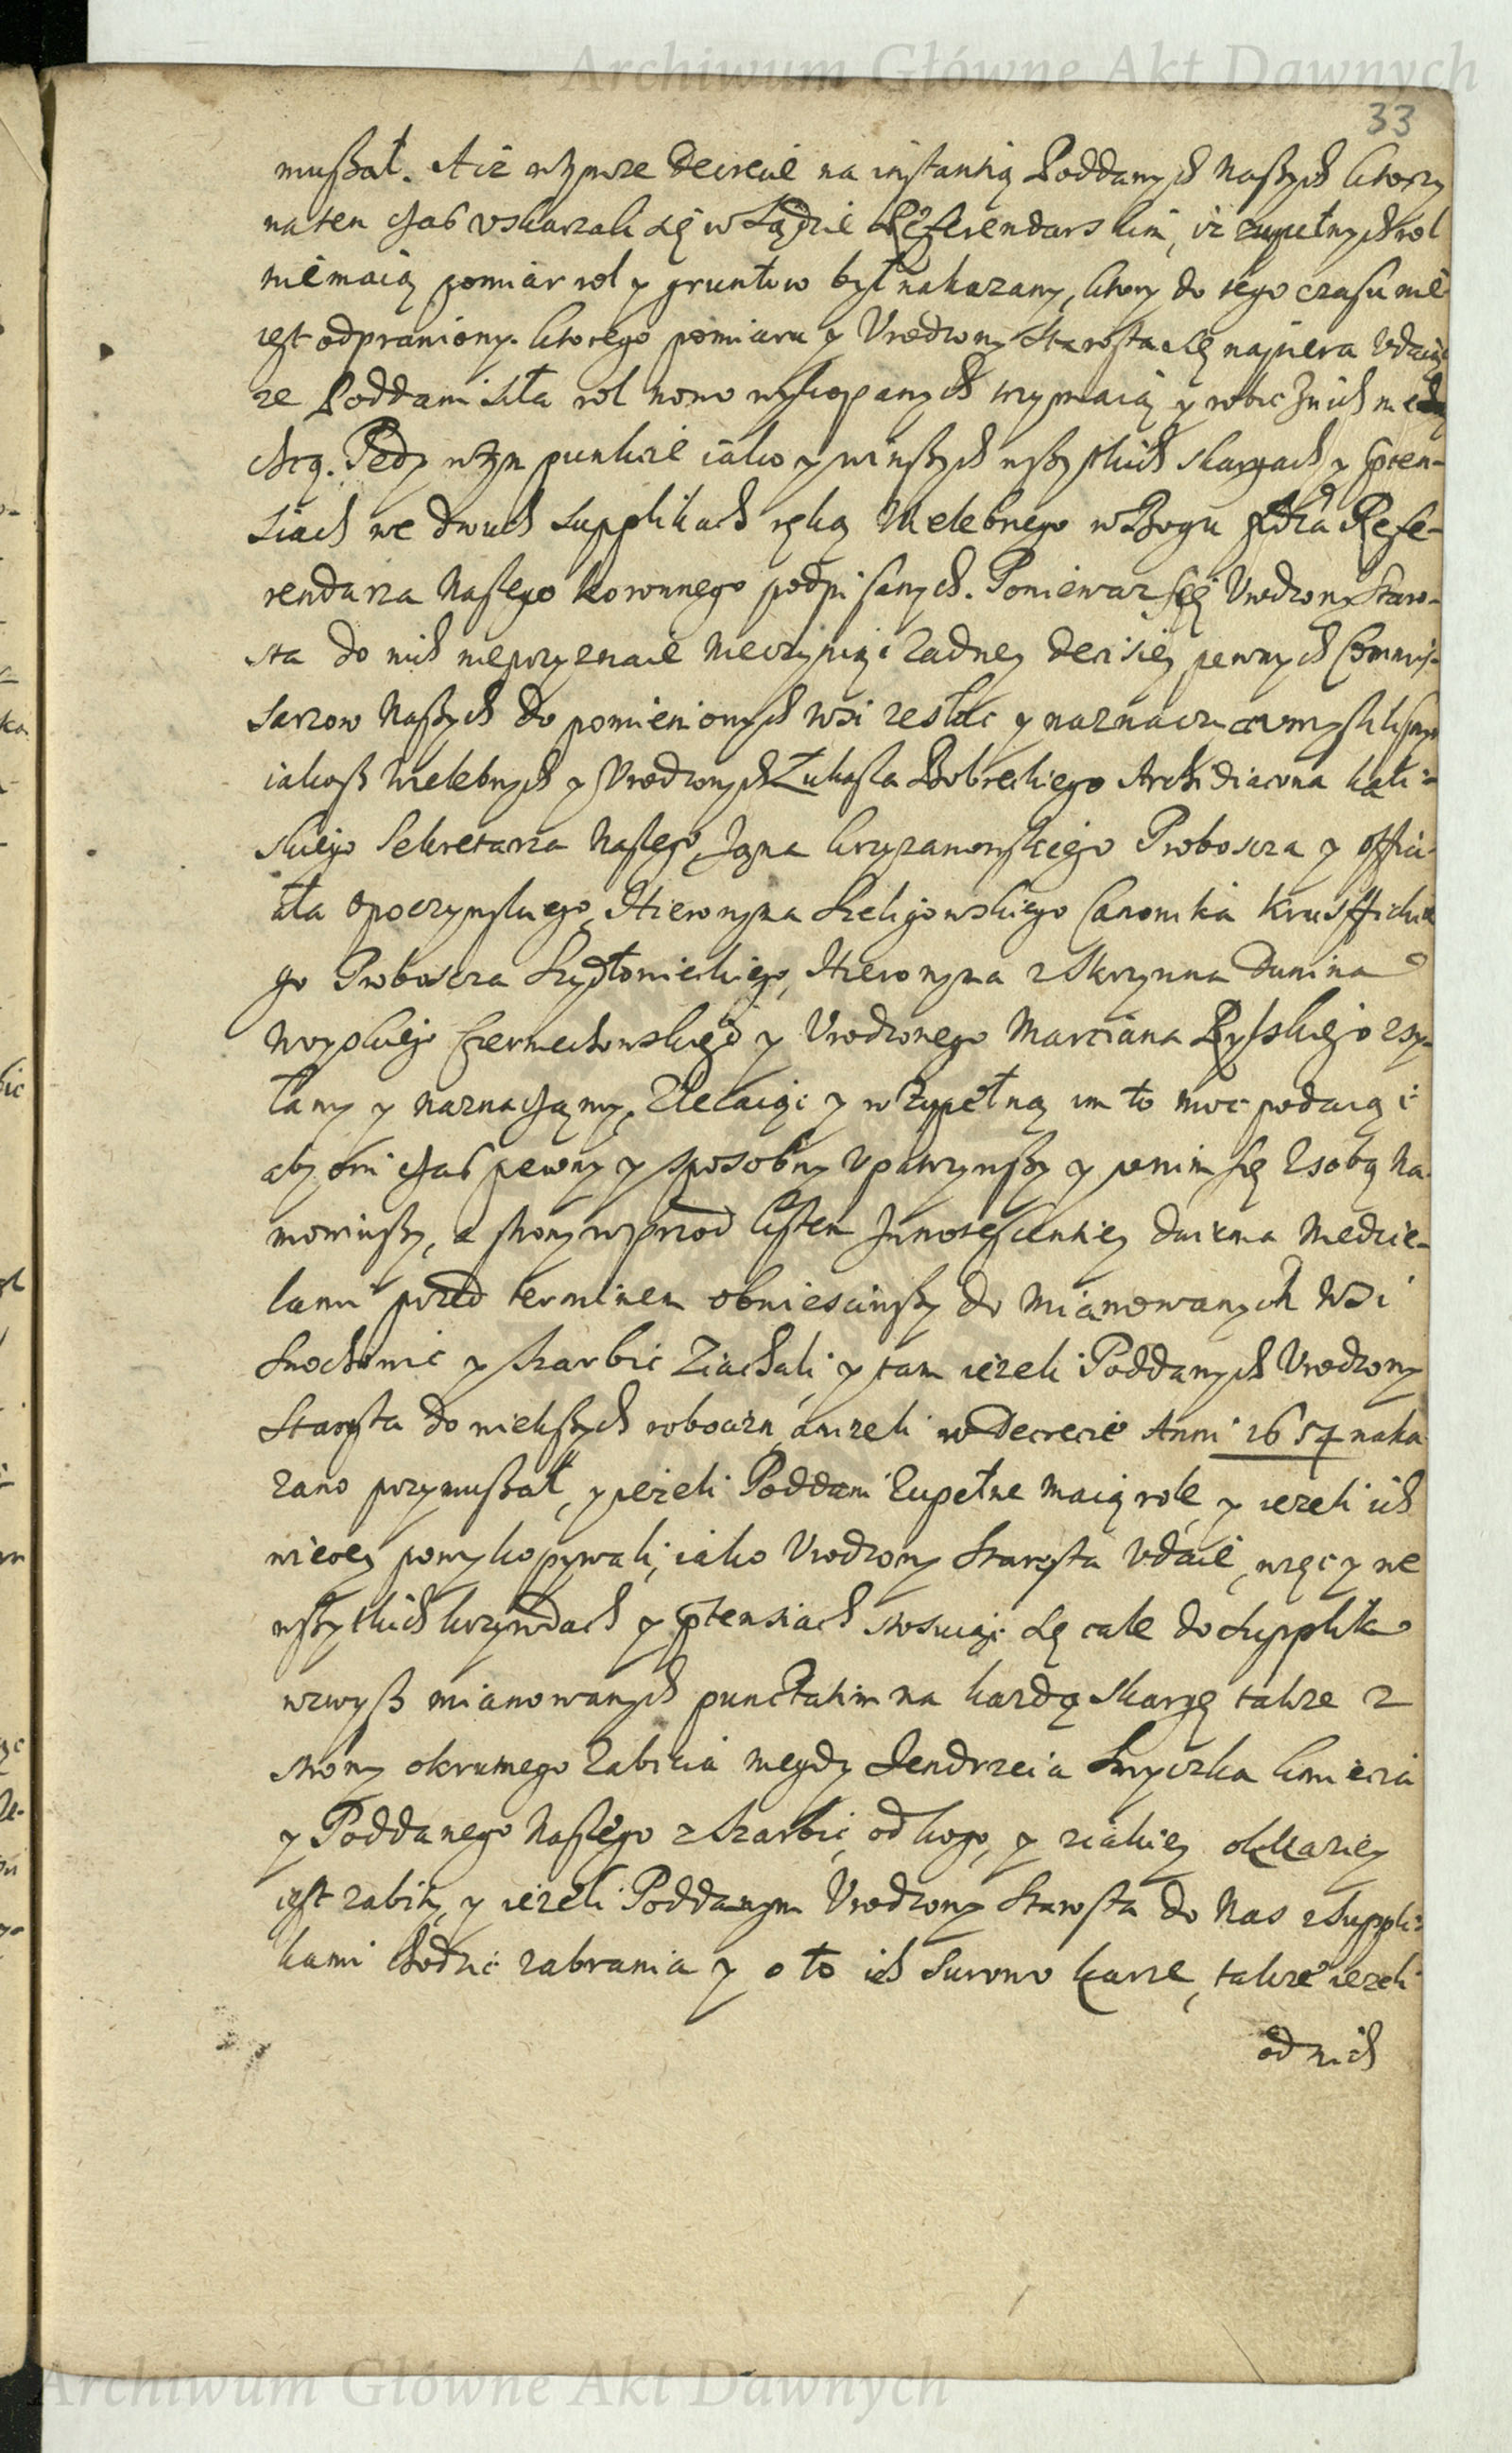 Archiwum Główne Akt Dawnych
33
mußał. A iż w tymże Decrecie na instantią Poddanych Naszych ktorzy
na ten czas vskarzali się w Sądzie Referendarskim, iz zupełnych rol
niemaią pomiar rol y gruntow był nakazany, ktory do tego czasu nie
iest odprawiony. ktorego pomiaru y Vrodzony Starosta się napiera vdaiąc
ze Poddani siła rol nowo wykopanych trzymaią y robić z nich nie
chcą. Tedy w tym punkcie iako y w inßych wßytkich skargach y ꝓten-
siach we dwuch supplikach ręką Wielebnego w Bogu Xiędza Refe-
rendarza Naszego koronnego podpisanych. Poniewaz się Vrodzony Staro-
sta do nich nieprzyznaie nieczyniąc zadney decisiey pewnych Commis-
sarzow Naßych do pomienionych wsi zesłac y naznaczyc vmyslilismy
iakoß Wielebnych y Vrodzonych Łukasza Bobreckiego Archidiacona kali-
skiego Sekretarza Naszego, Jana krzyzanowskiego Proboscza y offici-
ała opoczynskiego, Hieronyma Szeligowskiego Canonika kruszwickie
go Proboscza Szydłowieckiego, Hieronyma z Skrzynna Dunina
Woyskiego Czerniechowskiego y Vrodzonego Marciana Rylskiego zsy-
łamy y naznaczamy, Zlecaiąc y w zupełną im to moc podaiąc
aby oni czas pewny y sposobny vpatrzywßy y o nim się z sobą na-
mowiwßy, a strony wprzod listem Innotescentiey dwiema Niedzie-
lami przed terminem obwiesciwßy do mianowanych Wsi
Suchowic y Skarbic ziachali, y tam iezeli Poddanych Vrodzony
Starosta do wiekßych robocizn, anizeli w Decrecie Anni 1657 naka
zano przymußał, y iezeli Poddani zupełne maią role, y iezeli ich
wiecey powykopywali, iako Vrodzony Starosta vdaie, więc y we
wßytkich krzywdach y ꝓtensiach stosuiąc się cale do Supplik
wzwyß mianowanych punctatim na kazdą skargę takze z
strony okrutnego zabicia niegdy Jendrzeia Smyczka kmiecia
y Poddanego Naszego z Skarbic, od kogo, y z iakiey okkaziey
iest zabity, y iezeli Poddanym Vrodzony Starosta do Nas z suppli-
kami chodzic zabrania y o to ich surowo karze, takze iezeli
od nich
Archiwum Główne Akt Dawnych